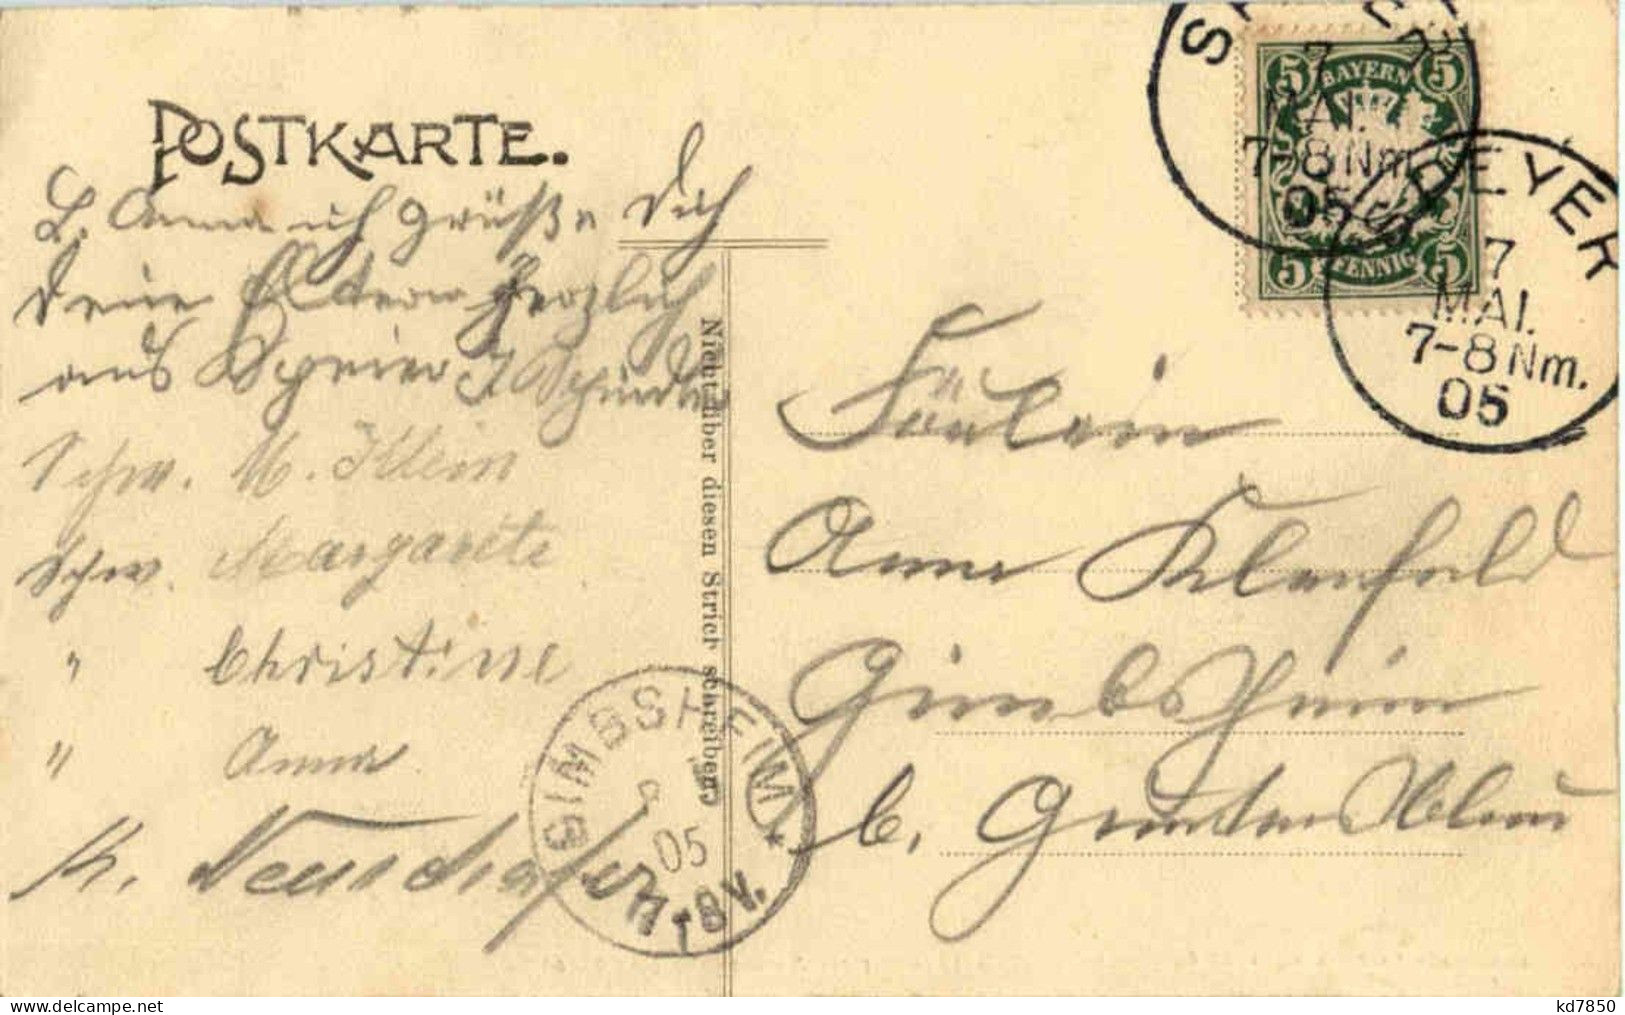 POSTKARTE.
L. Anna ich grüße Dich
Deine Eltern herzlich
aus Speier
Schw. M. Klein
Schw. Margarete
" Christine
" Anna
K. Neuschäfer
Nicht über diesen Strich schreiben
GIMBSHEIM
05
7-8 V.
BAYERN
5 5
5 5
PFENNIG
SPEYER
7
MAI.
7-8 Nm.
05
SPEYER
7
MAI.
7-8 Nm.
05
Fräulein
Anna
Gimbsheim
b.
www.delcampe.net
kd7850